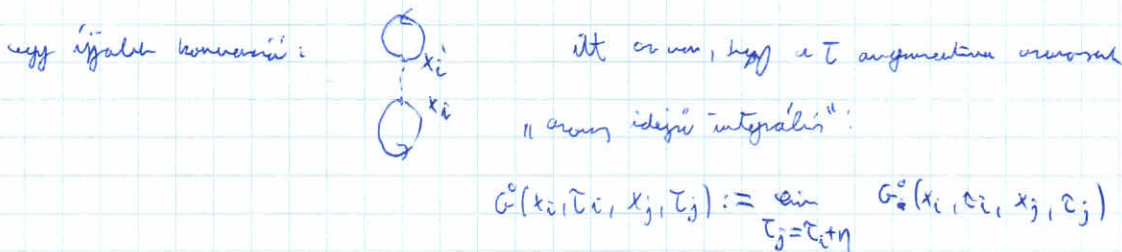 egy újjabb konvenció: x_i' itt az van, hogy a τ argumentuma azonosak
x_i "azonos idejű integrális":
G°(x_i, τ_i, x_j, τ_j) := lim_{τ_j=τ_i+η} G°(x_i, τ_i, x_j, τ_j)